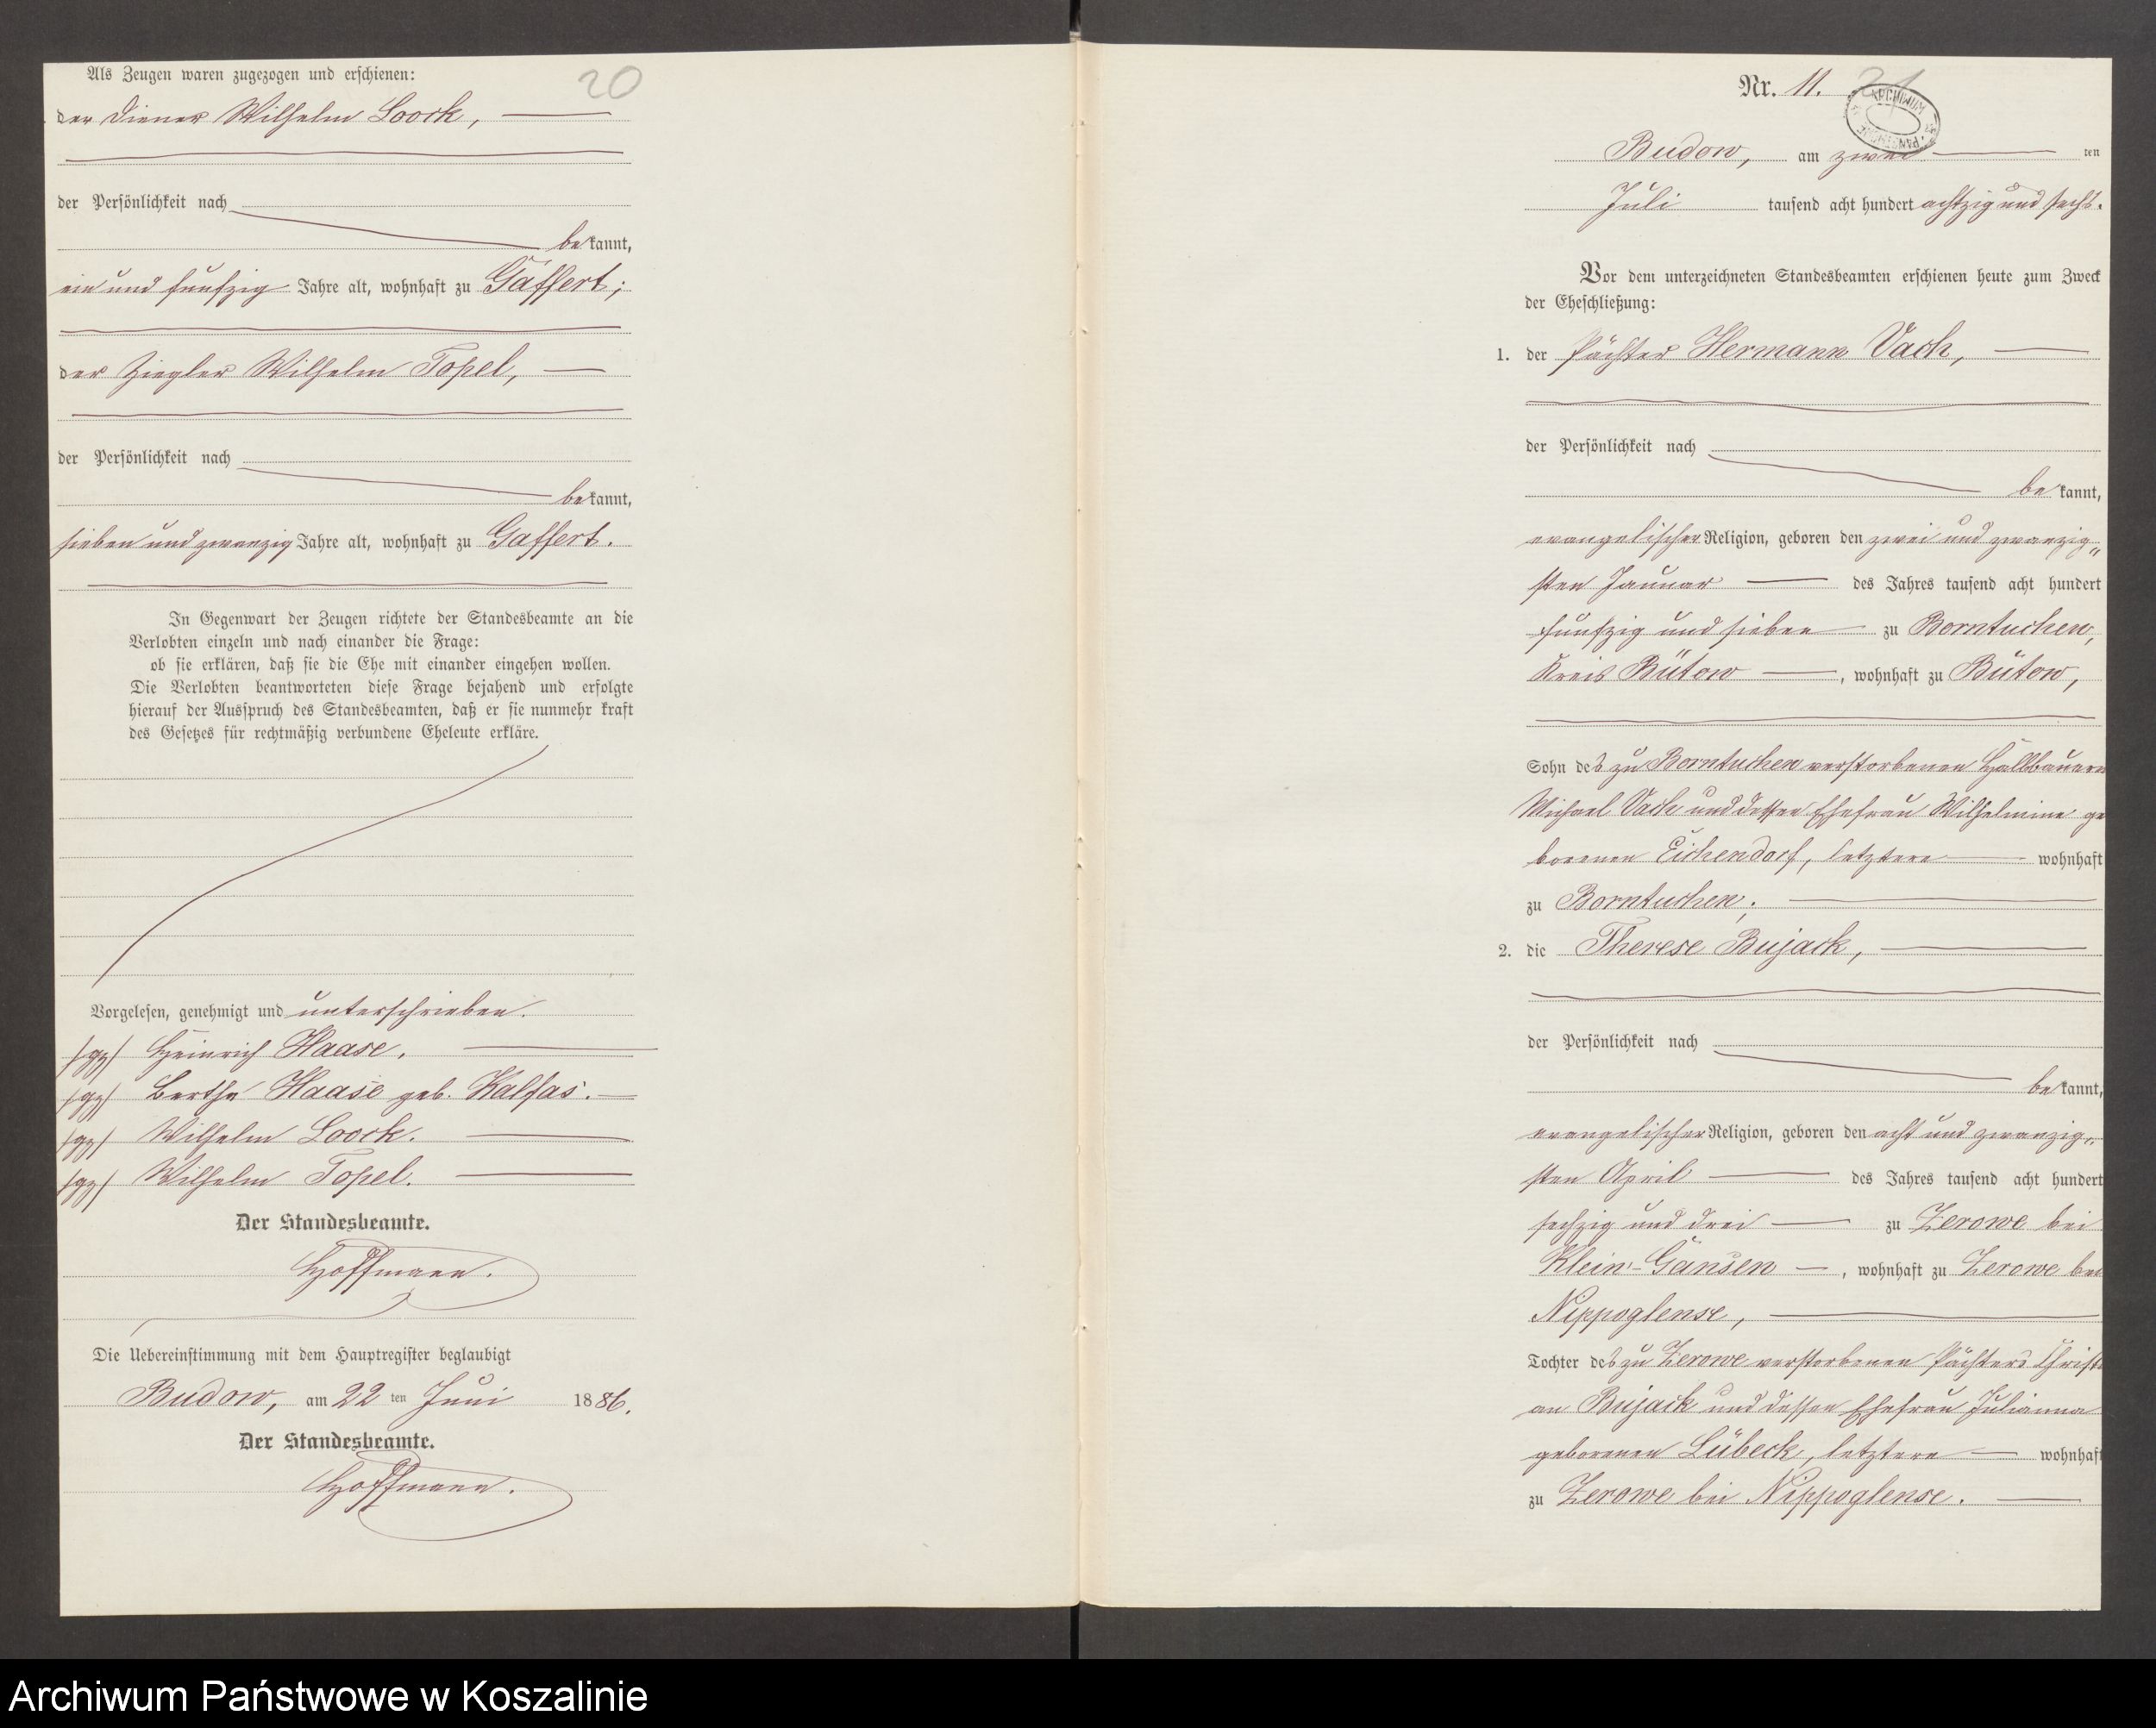 Als Zeugen waren zugezogen und erschienen:
20
der Diener Wilhelm Loock,
der Persönlichkeit nach
bekannt,
ein und funfzig Jahre alt, wohnhaft zu Gaffert;
der Ziegler Wilhelm Topel,
der Persönlichkeit nach
bekannt,
sieben und zwanzig Jahre alt, wohnhaft zu Gaffert.
In Gegenwart der Zeugen richtete der Standesbeamte an die
Verlobten einzeln und nach einander die Frage:
ob sie erklären, daß sie die Ehe mit einander eingehen wollen.
Die Verlobten beantworteten diese Frage bejahend und erfolgte
hierauf der Ausspruch des Standesbeamten, daß er sie nunmehr kraft
des Gesetzes für rechtmäßig verbundene Eheleute erkläre.
Vorgelesen, genehmigt und unterschrieben.
/gz/ Heinrich Haase.
/gz/ Berthe Haase geb. Kalfas.
/gz/ Wilhelm Loock.
/gz/ Wilhelm Topel.
Der Standesbeamte.
Hoffmann.
Die Uebereinstimmung mit dem Hauptregister beglaubigt
Budow, am 22 ten Juni 1886.
Der Standesbeamte.
Hoffmann.
Nr. 11.
21
ARCHIWUM
Budow, am zwei ten
Juli tausend acht hundert achtzig und sechs.
Vor dem unterzeichneten Standesbeamten erschienen heute zum Zweck
der Eheschließung:
1. der Pächter Hermann Vach,
der Persönlichkeit nach
bekannt,
evangelischer Religion, geboren den zwei und zwanzig„
sten Januar des Jahres tausend acht hundert
funfzig und sieben zu Borntuchen,
Kreis Bütow, wohnhaft zu Bütow,
Sohn des zu Borntuchen verstorbenen Halbbauern
Michael Vach und dessen Ehefrau Wilhelmine ge
borenen Eichendorf, letztere wohnhaft
zu Borntuchen;
2. die Therese Bujack,
der Persönlichkeit nach
bekannt,
evangelischer Religion, geboren den acht und zwanzig„
sten April des Jahres tausend acht hundert
sechzig und drei zu Zerowe bei
Klein-Gansen, wohnhaft zu Zerowe bei
Nippoglense,
Tochter des zu Zerowe verstorbenen Pächters Christi
an Bujack und dessen Ehefrau Julianna
geborenen Lübeck, letztere wohnhaft
zu Zerowe bei Nippoglense.
Archiwum Państwowe w Koszalinie